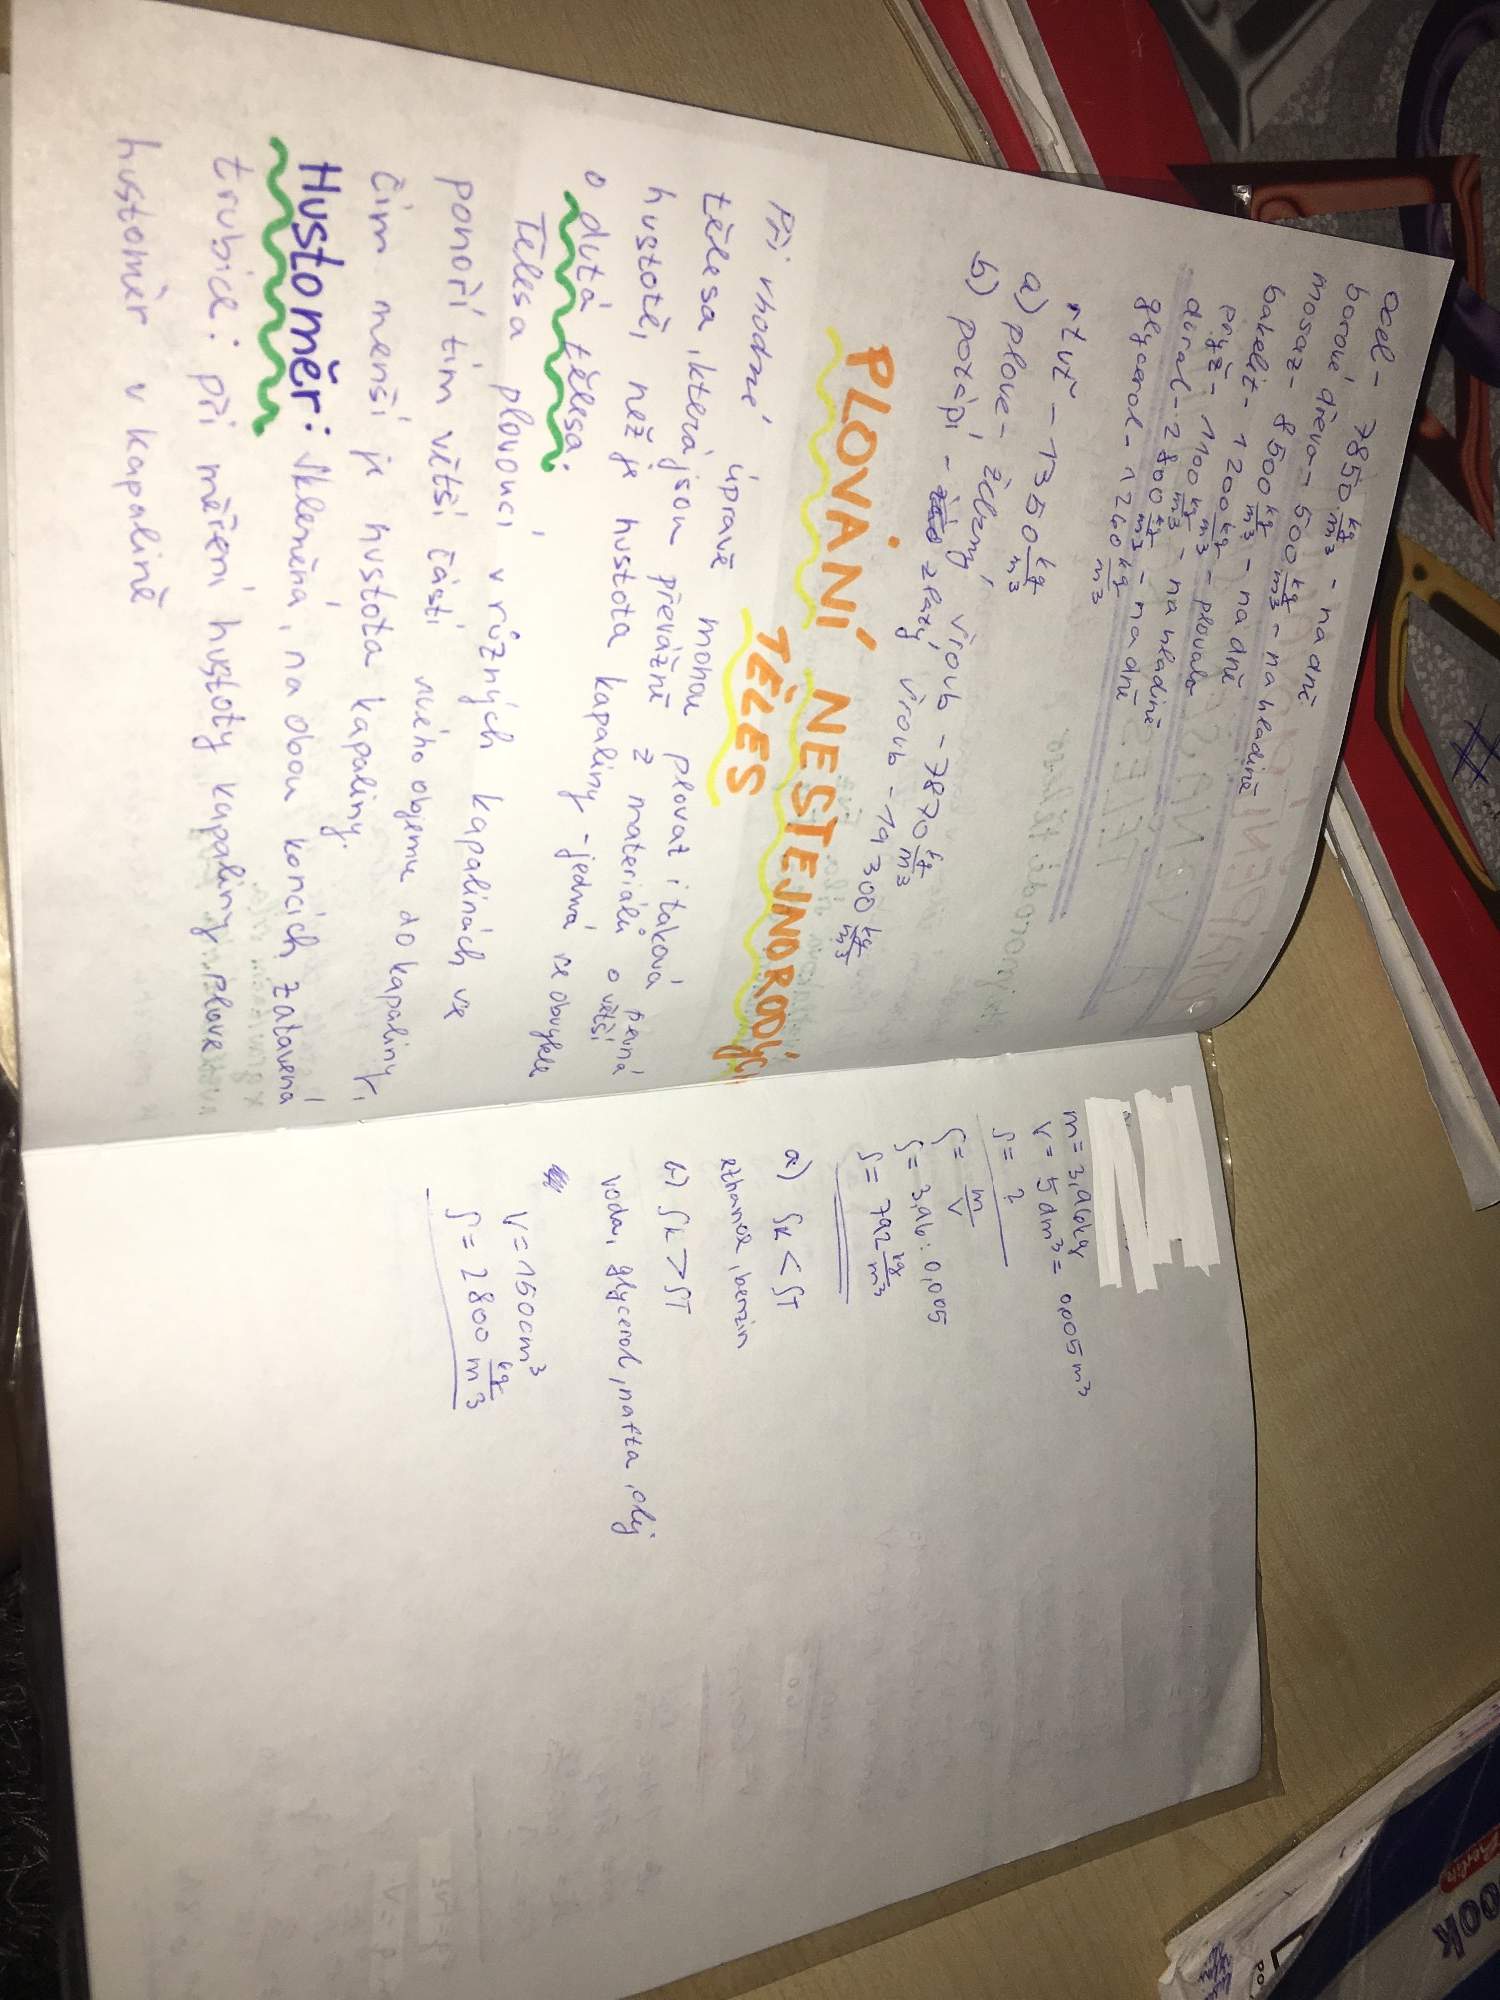 ocel - 7850 kg/m3 - na dně
borové dřevo - 500 kg/m3 - na hladině
mosaz - 8500 kg/m3 - na dně
bakelit - 1200 kg/m3 - plovala
pryž - 1100 kg/m3 - na hladině
dural - 2800 kg/m3 - na dně
glycerol - 1260 kg/m3
rtuť - 1350 kg/m3
a) plove - železný šroub - 7870 kg/m3
b) potápí - zlatý šroub - 19 300 kg/m3
PLOVÁNÍ NESTEJNORODÝCH
TĚLES
Při vhodné úpravě mohou plovat i taková
tělesa, která jsou převážně z materiálů o větší
hustotě, než je hustota kapaliny - jedná se obvykle
o dutá tělesa.
Tělesa plovoucí v různých kapalinách se
ponoří tím větší částí svého objemu do kapaliny,
čím menší je hustota kapaliny.
Hustoměr: skleněná, na obou koncích zatavená
trubice: při měření hustoty kapaliny plove
hustoměr v kapalině
m = 3,96kg
V = 5 dm³ = 0,005 m³
ρ = ?
ρ = m/V
ρ = 3,96 : 0,005
ρ = 792 kg/m3
a) ρk < ρT
ethanol, benzin
b) ρk > ρT
voda, glycerol, nafta, olej
V = 150cm³
ρ = 2800 kg/m3
ook